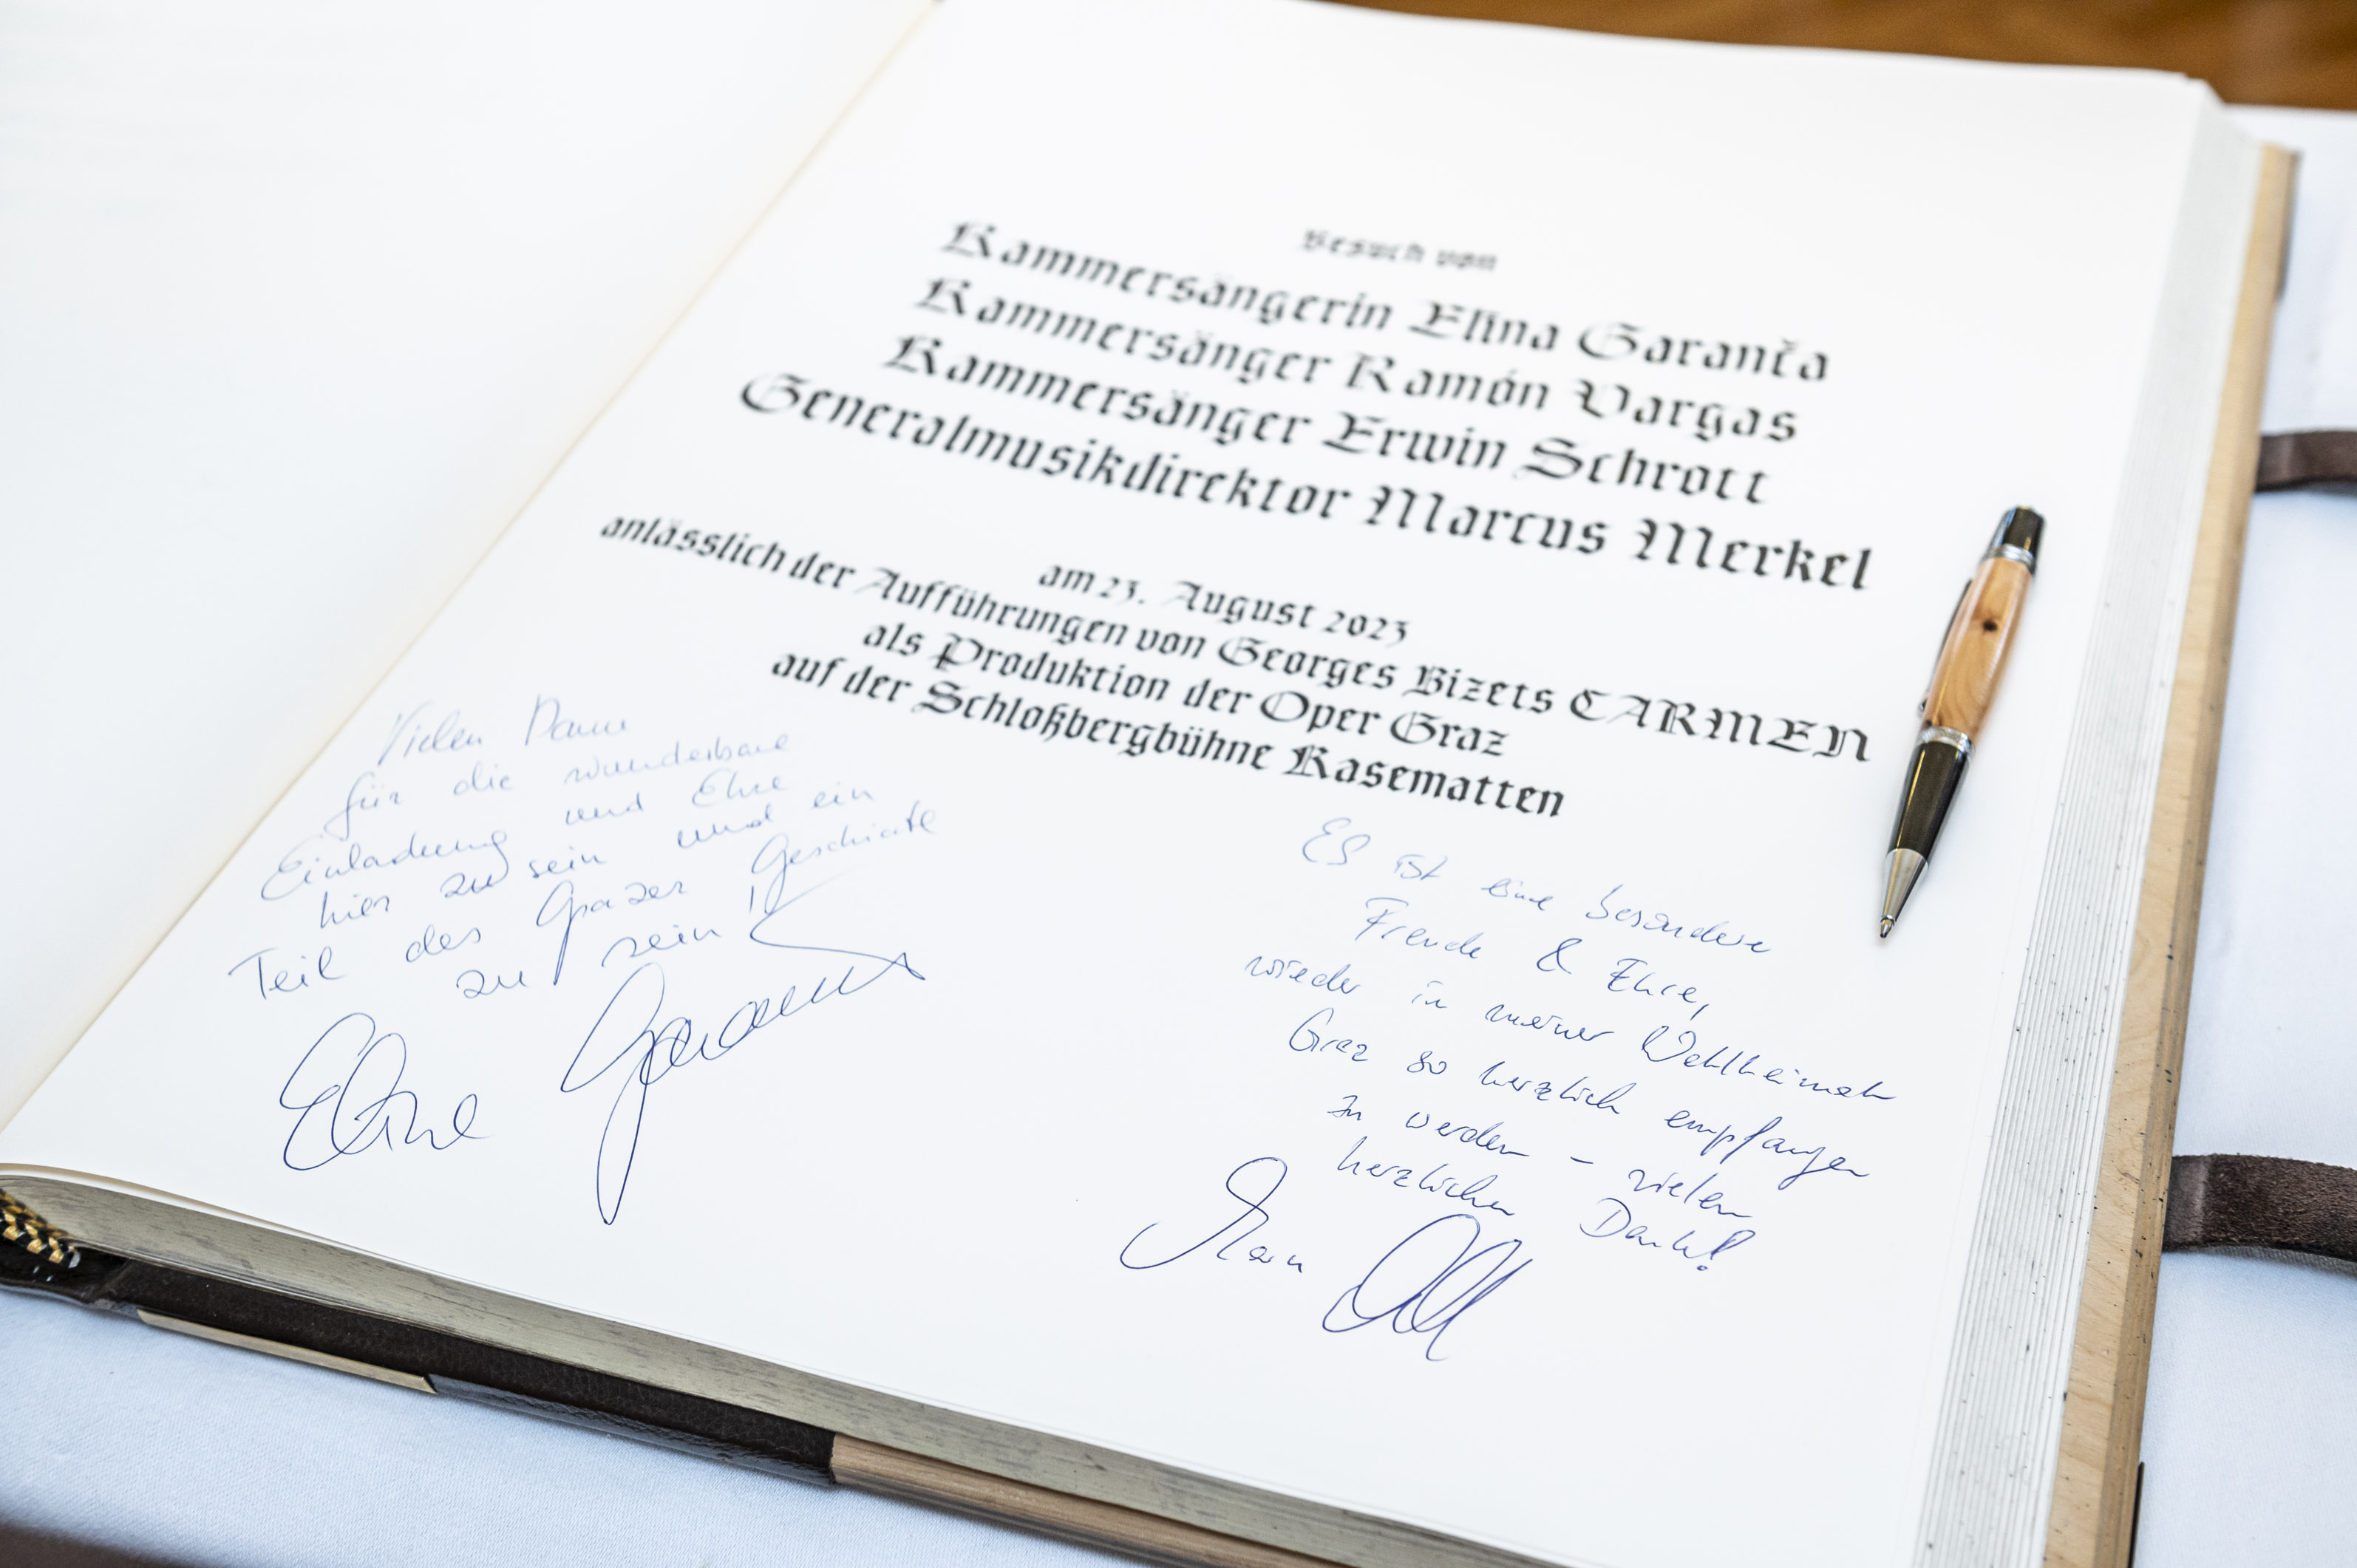 Besuch von
Kammersängerin Elīna Garanča
Kammersänger Ramón Vargas
Kammersänger Erwin Schrott
Generalmusikdirektor Marcus Merkel
am 23. August 2023
anlässlich der Aufführungen von Georges Bizets CARMEN
als Produktion der Oper Graz
auf der Schloßbergbühne Kasematten
Vielen Dank
für die wunderbare
Einladung und Ehre
hier zu sein und ein
Teil der Grazer Geschichte
zu sein!
Elina Garanca
Es ist eine besondere
Freude & Ehre,
wieder in meiner Wahlheimat
Graz so herzlich empfangen
zu werden – vielen
herzlichen Dank!